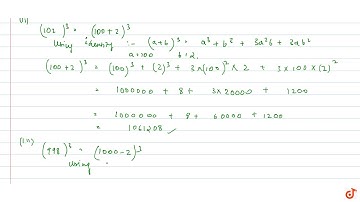 (ii)
(102)³ = (100+2)³
Using identity :- (a+b)³ = a³ + b³ + 3a²b + 3ab²
a=100 b=2.
(100+2)³ = (100)³ + (2)³ + 3×(100)² × 2 + 3×100×(2)²
= 1000000 + 8 + 3×20000 + 1200
= 1000000 + 8 + 60000 + 1200
= 1061208 ✓
(iii)
(998)³ = (1000-2)³
Using